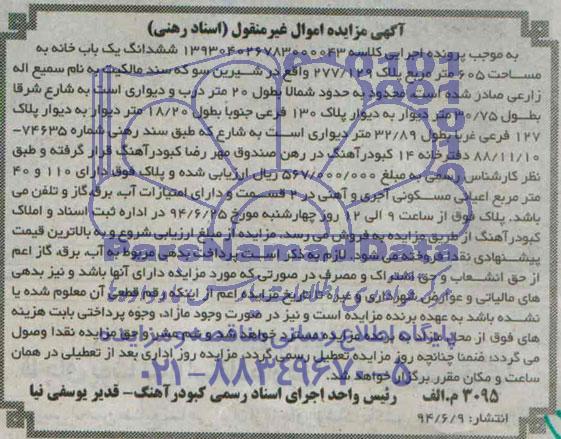 آگهی مزایده اموال غیرمنقول (اسناد رهنی)
به موجب پرونده اجرایی کلاسه ۱۳۹۳۰۴۰۲۶۷۸۳۰۰۰۰۴۳ ششدانگ یک باب خانه به
مساحت ۶۰۵ متر مربع پلاک ۲۷۷/۱۲۹ واقع در شیرین سو که سند مالکیت به نام سمیع اله
زارعی صادر شده است. محدود به حدود شمالاً بطول ۲۰ متر درب و دیواری است به شارع شرقا
بطول ۳۰/۷۵ متر دیوار به دیوار پلاک ۱۳۰ فرعی جنوباً بطول ۱۸/۲۰ متر دیوار به دیوار پلاک
۱۲۷ فرعی غرباً بطول ۳۲/۸۹ متر دیواری است به شارع که طبق سند رهنی شماره ۷۴۶۳۵-
۸۸/۱۱/۱۰ دفترخانه ۱۴ کبودرآهنگ در رهن صندوق مهر رضا کبودرآهنگ قرار گرفته و طبق
نظر کارشناس رسمی به مبلغ ۵۶۷/۰۰۰/۰۰۰ ریال ارزیابی شده و پلاک فوق دارای ۱۱۰ و ۴۰
متر مربع اعیانی مسکونی آجری و آهنی در ۲ قسمت و دارای امتیازات آب، برق، گاز و تلفن می
باشد. پلاک فوق از ساعت ۹ الی ۱۲ روز چهارشنبه مورخ ۹۴/۶/۲۵ در اداره ثبت اسناد و املاک
کبودرآهنگ از طریق مزایده به فروش می رسد. مزایده از مبلغ ارزیابی شروع و به بالاترین قیمت
پیشنهادی نقداً فروخته می شود. لازم به ذکر است پرداخت بدهی مربوط به آب، برق، گاز اعم
از حق انشعاب و حق اشتراک و مصرف در صورتی که مورد مزایده دارای آنها باشد و نیز بدهی
های مالیاتی و عوارض شهرداری و غیره تا تاریخ مزایده اعم از اینکه رقم قطعی آن معلوم شده یا
نشده باشد به عهده برنده مزایده است و نیز در صورت وجود مازاد، وجوه پرداختی بابت هزینه
های فوق از محل مازاد به برنده مزایده مسترد خواهد شد و نیم عشر و حق مزایده نقدا وصول
می گردد. ضمنا چنانچه روز مزایده تعطیل رسمی گردد، مزایده روز اداری بعد از تعطیلی در همان
ساعت و مکان مقرر برگزار خواهد شد.
۳۰۹۵ م.الف رئیس واحد اجرای اسناد رسمی کبودرآهنگ- قدیر یوسفی نیا
انتشار: ۹۴/۶/۹
ParsNamadData
پایگاه اطلاع رسانی مناقصه و مزایده
۰۲۱-۸۸۳۴۹۶۷۰-۵